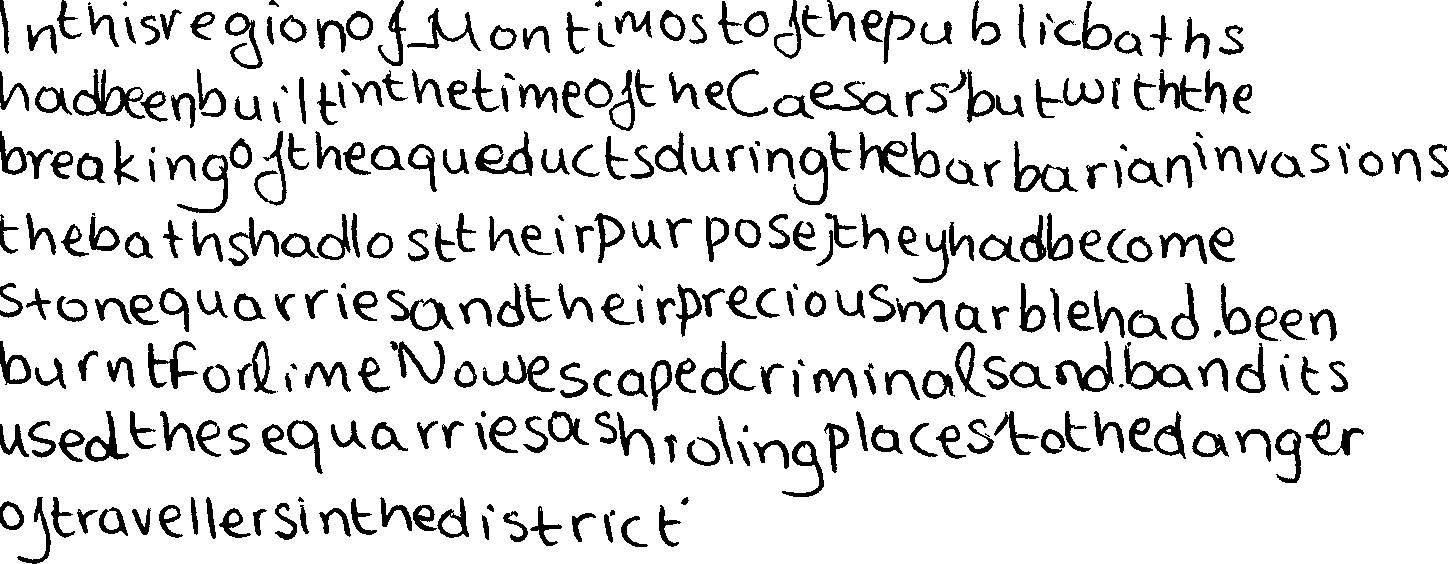 In this region of Monti most of the public baths
had been built in the time of the Caesars, but with the
breaking of the aqueducts during the barbarian invasions
the baths had lost their purpose; they had become
stone quarries and their precious marble had been
burnt for lime. Now escaped criminals and bandits
used these quarries as hiding places, to the danger
of travellers in the district.